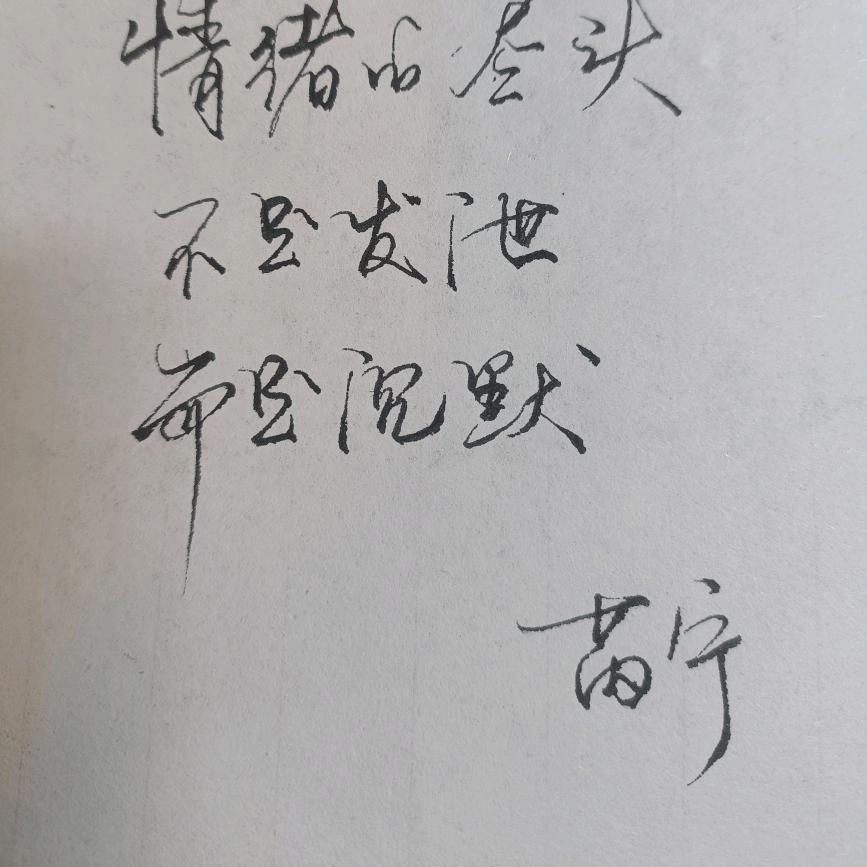 情绪的尽头
不是发泄
而是沉默
苗宁